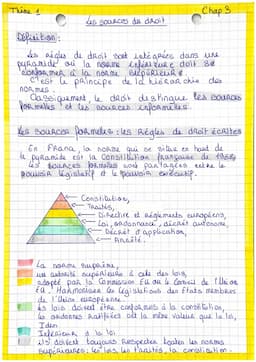 Thème 1
Chap 3
Les sources du droit
Définition :
Les règles de droit sont intégrées dans une
pyramide où la norme inférieure doit se
conformer à la norme supérieure.
C'est le principe de la hiérarchie des
normes.
Classiquement, le droit distingue les sources
formelles et les sources informelles.
Les sources formelles : les Règles de droit écrites
En France, la norme qui se situe en haut de
la pyramide est la Constitution française de 1958
Les sources formelles sont partagées entre le
pouvoir législatif et le pouvoir exécutif.
Constitution,
Traités,
Directive et règlements européens,
Loi, ordonnance, décret autonome,
Décret d'application,
Arrêté.
La norme suprême,
une autorité supérieure à celle des lois,
adopté par la Commission EU ou le Conseil de l'Union
EU. Harmoniser les législations des États membres
de l'Union européenne.
les lois doivent être conformes à la constitution,
les ordonnances ratifiées ont la même valeur que la loi,
Idem
Inférieur à la loi
ils doivent toujours respecter toutes les normes
supérieures : les lois, les traités, la constitution.